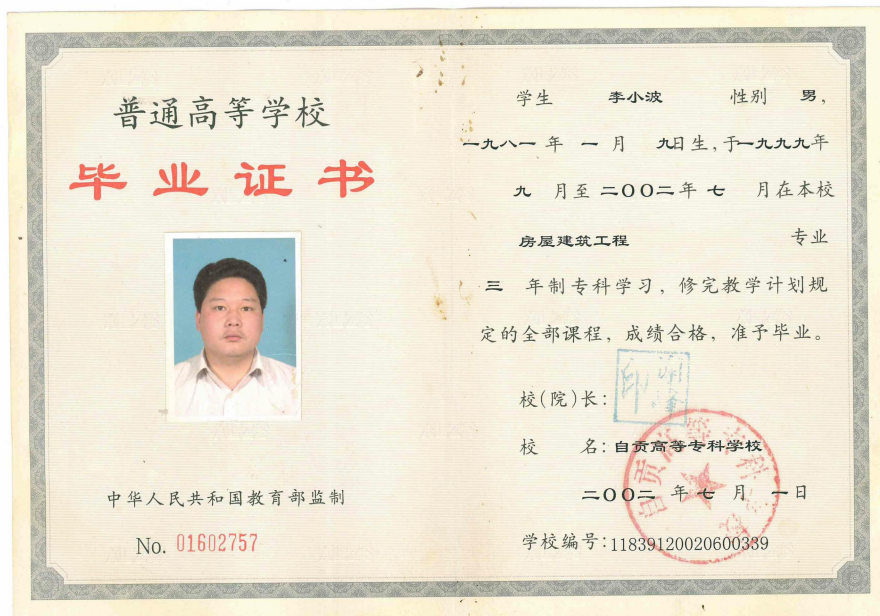 普通高等学校
毕业证书
中华人民共和国教育部监制
No. 01602757
学生 李小波 性别 男，
一九八一 年 一 月 九日生，于一九九九年
九 月至 二〇〇二年 七 月在本校
房屋建筑工程 专业
三 年制专科学习，修完教学计划规
定的全部课程，成绩合格，准予毕业。
校（院）长：
校 名：自贡高等专科学校
二〇〇二 年 七 月 一日
学校编号：11839120020600339